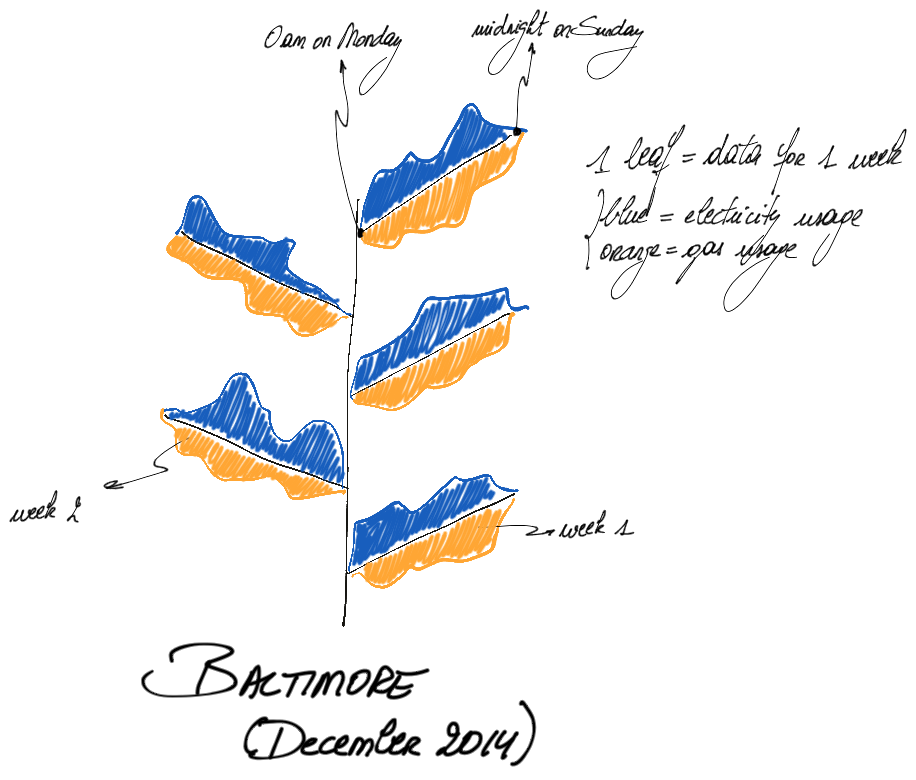 0am on Monday
midnight on Sunday
1 leaf = data for 1 week
blue = electricity usage
orange = gas usage
week 2
week 1
BALTIMORE
(December 2014)